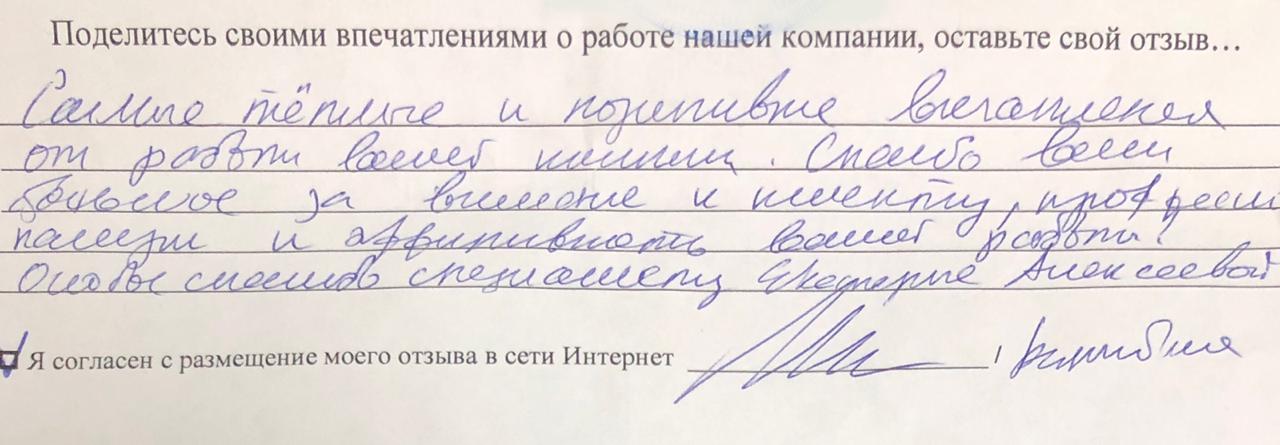 Поделитесь своими впечатлениями о работе нашей компании, оставьте свой отзыв…
Самые тёплые и позитивные впечатления
от работы вашей компании. Спасибо вам
большое за внимание к клиенту, професси
нализм и эффективность вашей работы!
Особое спасибо специалисту Екатерине Алексеевой
Я согласен с размещение моего отзыва в сети Интернет